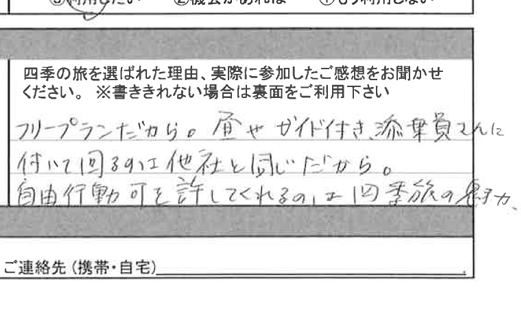 ③利用したい ②機会があれば ①もう利用しない
四季の旅を選ばれた理由、実際に参加したご感想をお聞かせ
ください。 ※書ききれない場合は裏面をご利用下さい
フリープランだから。昼や ガイド付き、添乗員さんに
付いて回るのは他社と同じだから。
自由行動可を許してくれるのは四季旅の魅力、
ご連絡先（携帯・自宅）